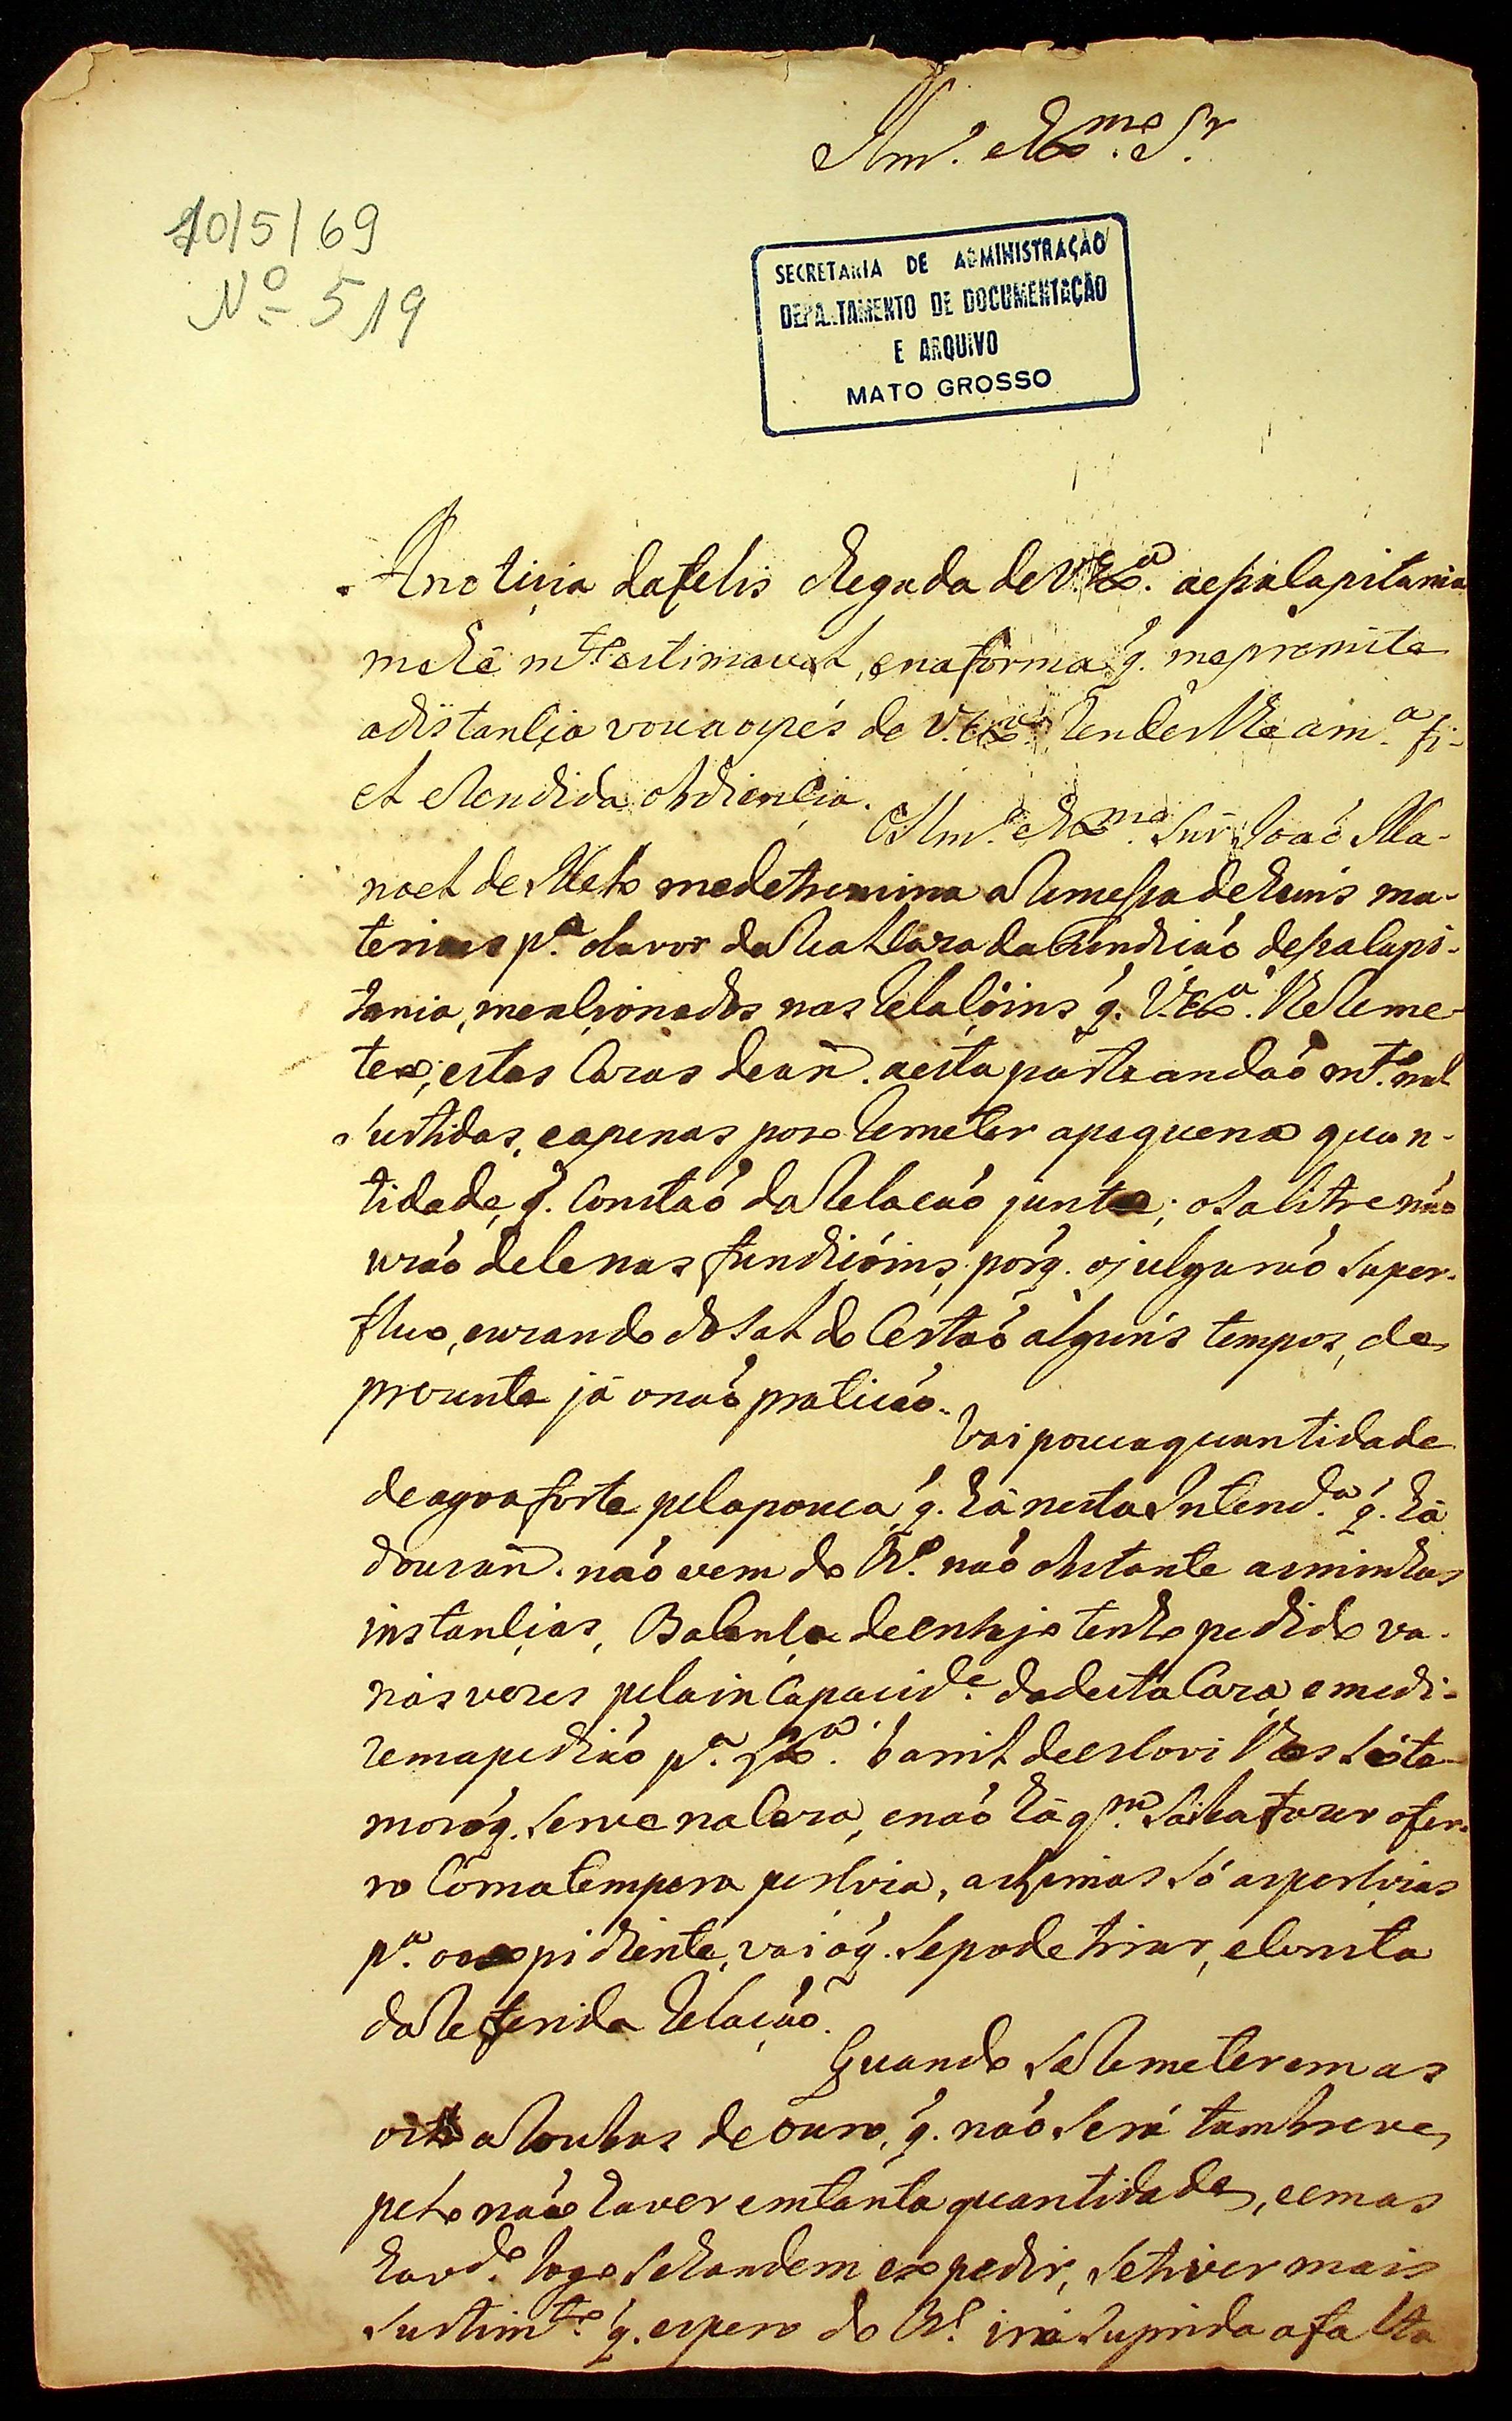 Ilm.º e Exmo. Sr
10/5/69
Nº 519
SECRETARIA DE ADMINISTRAÇÃO
DEPARTAMENTO DE DOCUMENTAÇÃO
E ARQUIVO
MATO GROSSO
A noticia da felis chegada de V. Exa. a essa Capitania
me hé mto. estimavel, e na forma q. me promite
a distancia vou aos pés de V. Exa. render lhe a m.a fi-
el e rendida obdiencia.
O Ilm.º e Exmo. Snr. João Ma-
noel de Mello me detremina a remessa de huns ma-
teriaes p.a o lavor da Real Caza da Fundicáo dessa Capi-
tania, mencionados nas relacóins q. V. Exa. lhe reme-
teo; estas Cazas de an. a esta parte andáo mt.º mal
surtidas, e apenas poso remeter a pequena quan-
tidade, q. constaó da relacáo junta; o salitre náo
uzáo dele nas fundicóins, porq. o julgaráo super-
fluo, e uzando do sal do Certaó alguns tempos, de
prezente já o naó praticáo.
Vai pouca quantidade
de agoa forte pela pouca q. há nesta Intend.a q. há
dous an. naó vem do R.º naó obstante as minhas
instancias, Balança de ensaje tenho pedido va-
rias vezes pela in capacid.e da desta Caza, e medi-
rem a pedicáo p.a V. Exa.
mo o q. serve na Caza, e naó há q.m saiba fazer o fer-
ro com a tempera perciza, as limas só as percizas
p.a o expidiente, vai o q. se pode tirar, e consta
da referida relacáo.
Quando se remeterem as
oito arroubas de ouro, q. naó será tam breve,
pelo naó haver em tanta quantidade, e em as
havd.o logo se handem expedir, se tiver mais
surtimt.o q. espero do R.º irá suprida a falta